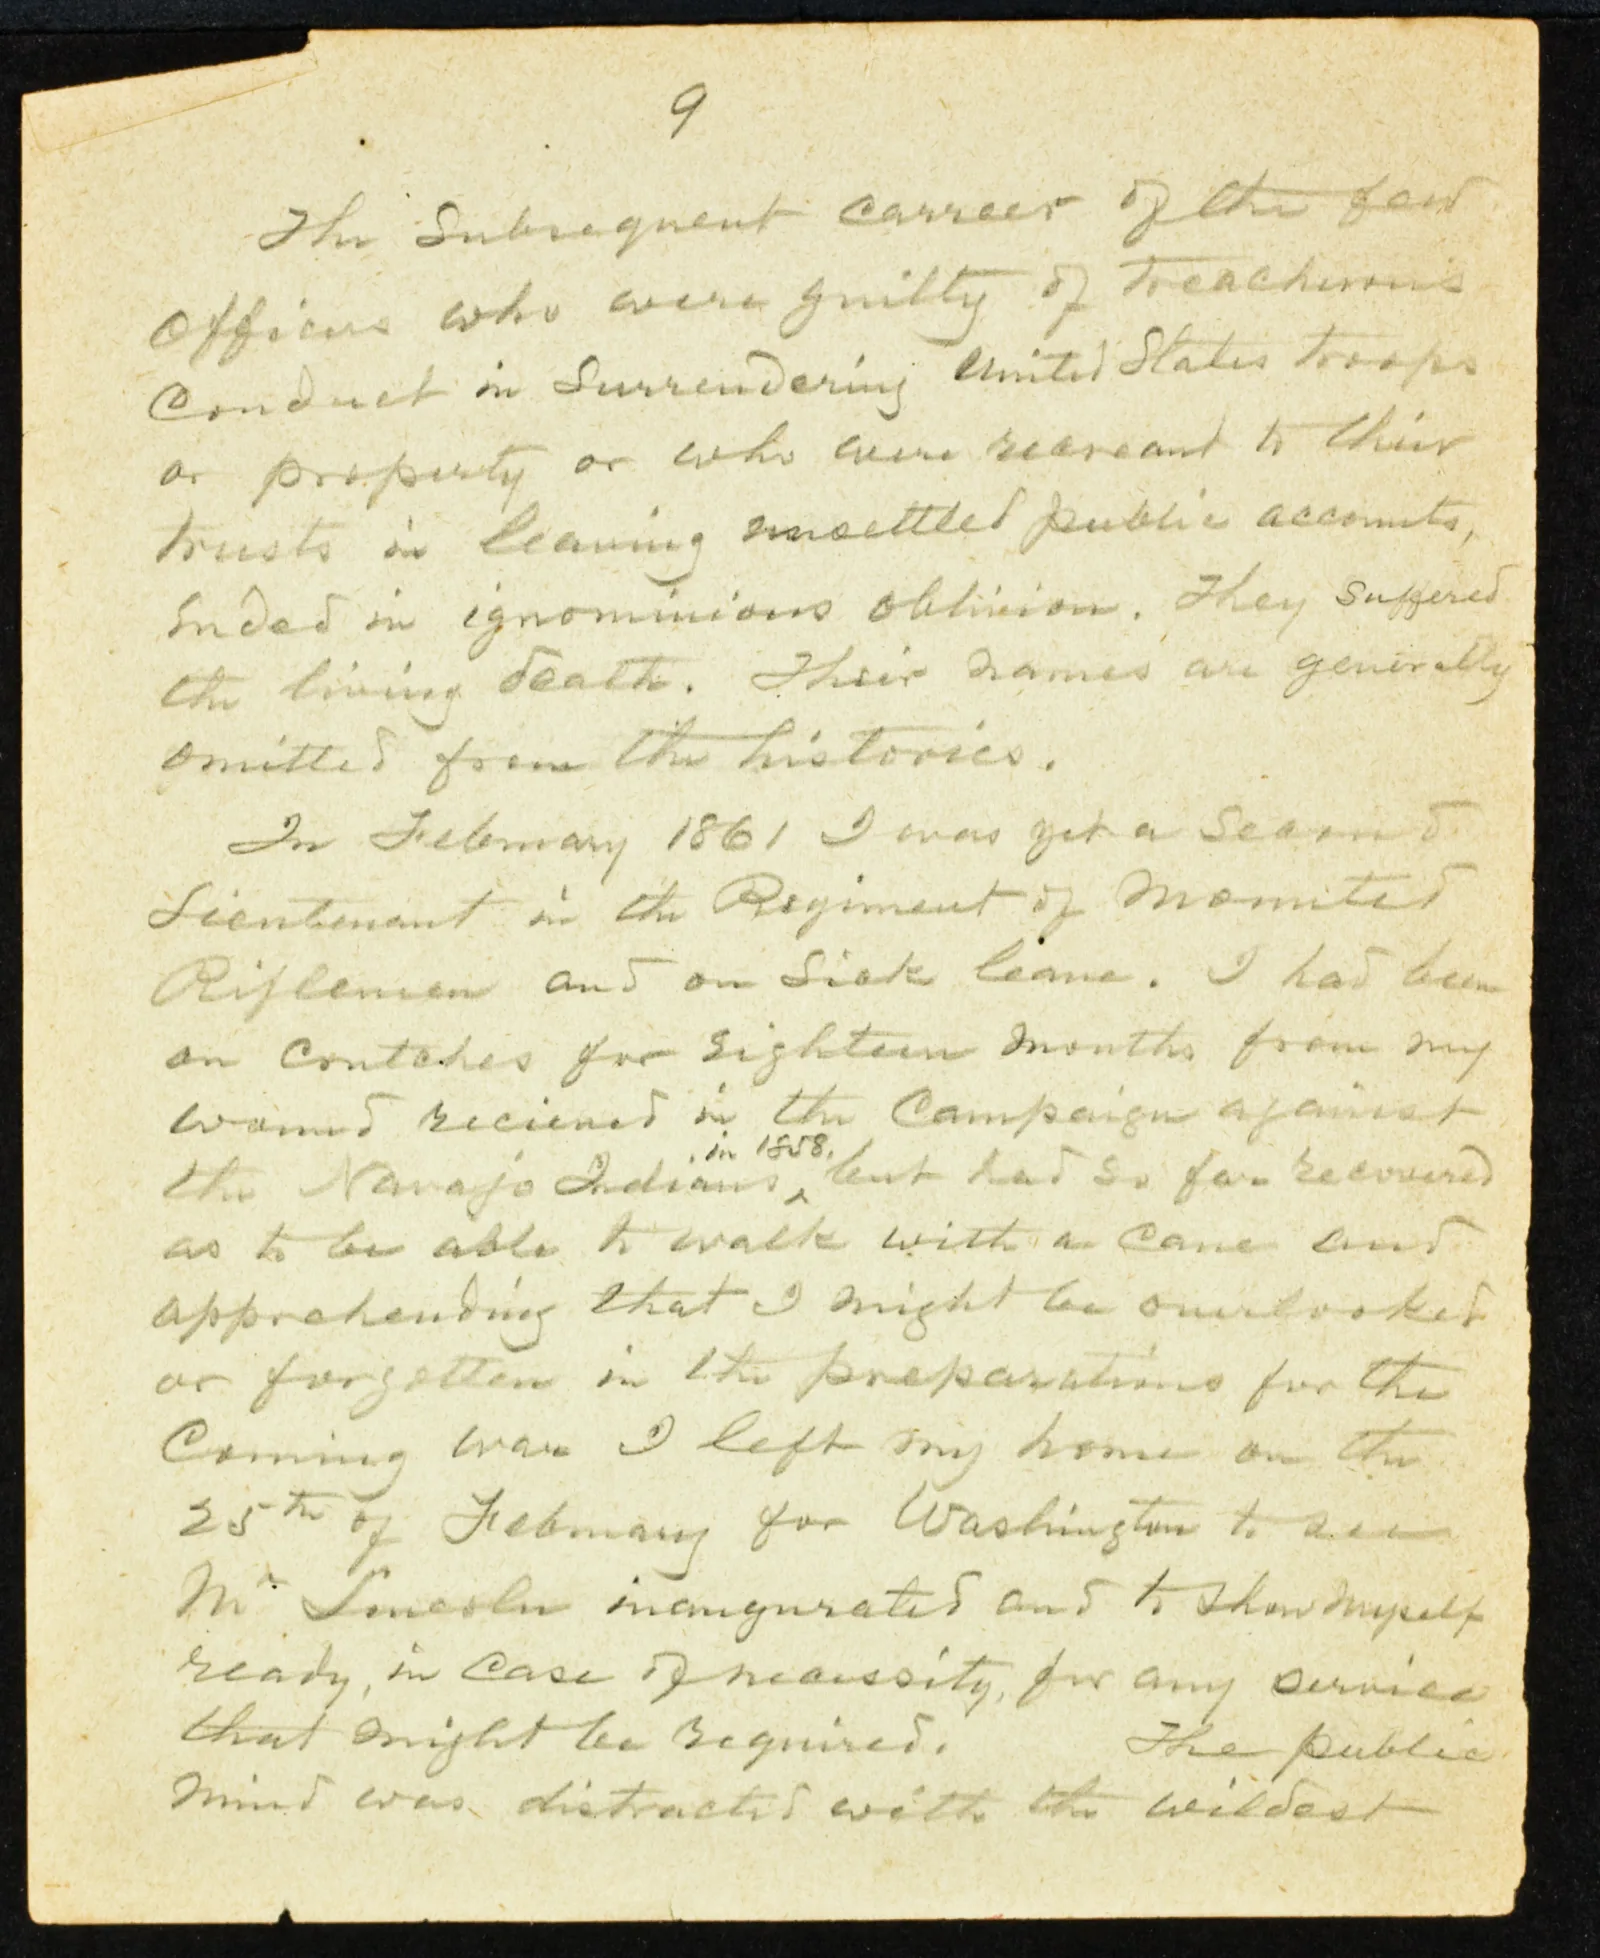 9
The Subsequent carreer of the few
Officers who were guilty of treacherous
Conduct in Surrendering United States troops
or property or who were recreant to their
trusts in leaving unsettled public accounts,
ended in ignominious oblivion. They suffered
the living death. Their names are generally
omitted from the histories.
In February 1861 I was yet a Second
Lieutenant in the Regiment of Mounted
Riflemen and on Sick leave. I had been
on crutches for eighteen months from my
wound recieved in the Campaign against
in 1858.
the Navajo Indians ‸ but had so far recovered
as to be able to walk with a cane and
apprehending that I might be overlooked
or forgotten in the preparations for the
Coming war I left my home on the
25th of February for Washington to see
Mr Lincoln inaugurated and to show myself
ready, in case of necessity, for any service
that might be required. The public
mind was distracted with the wildest